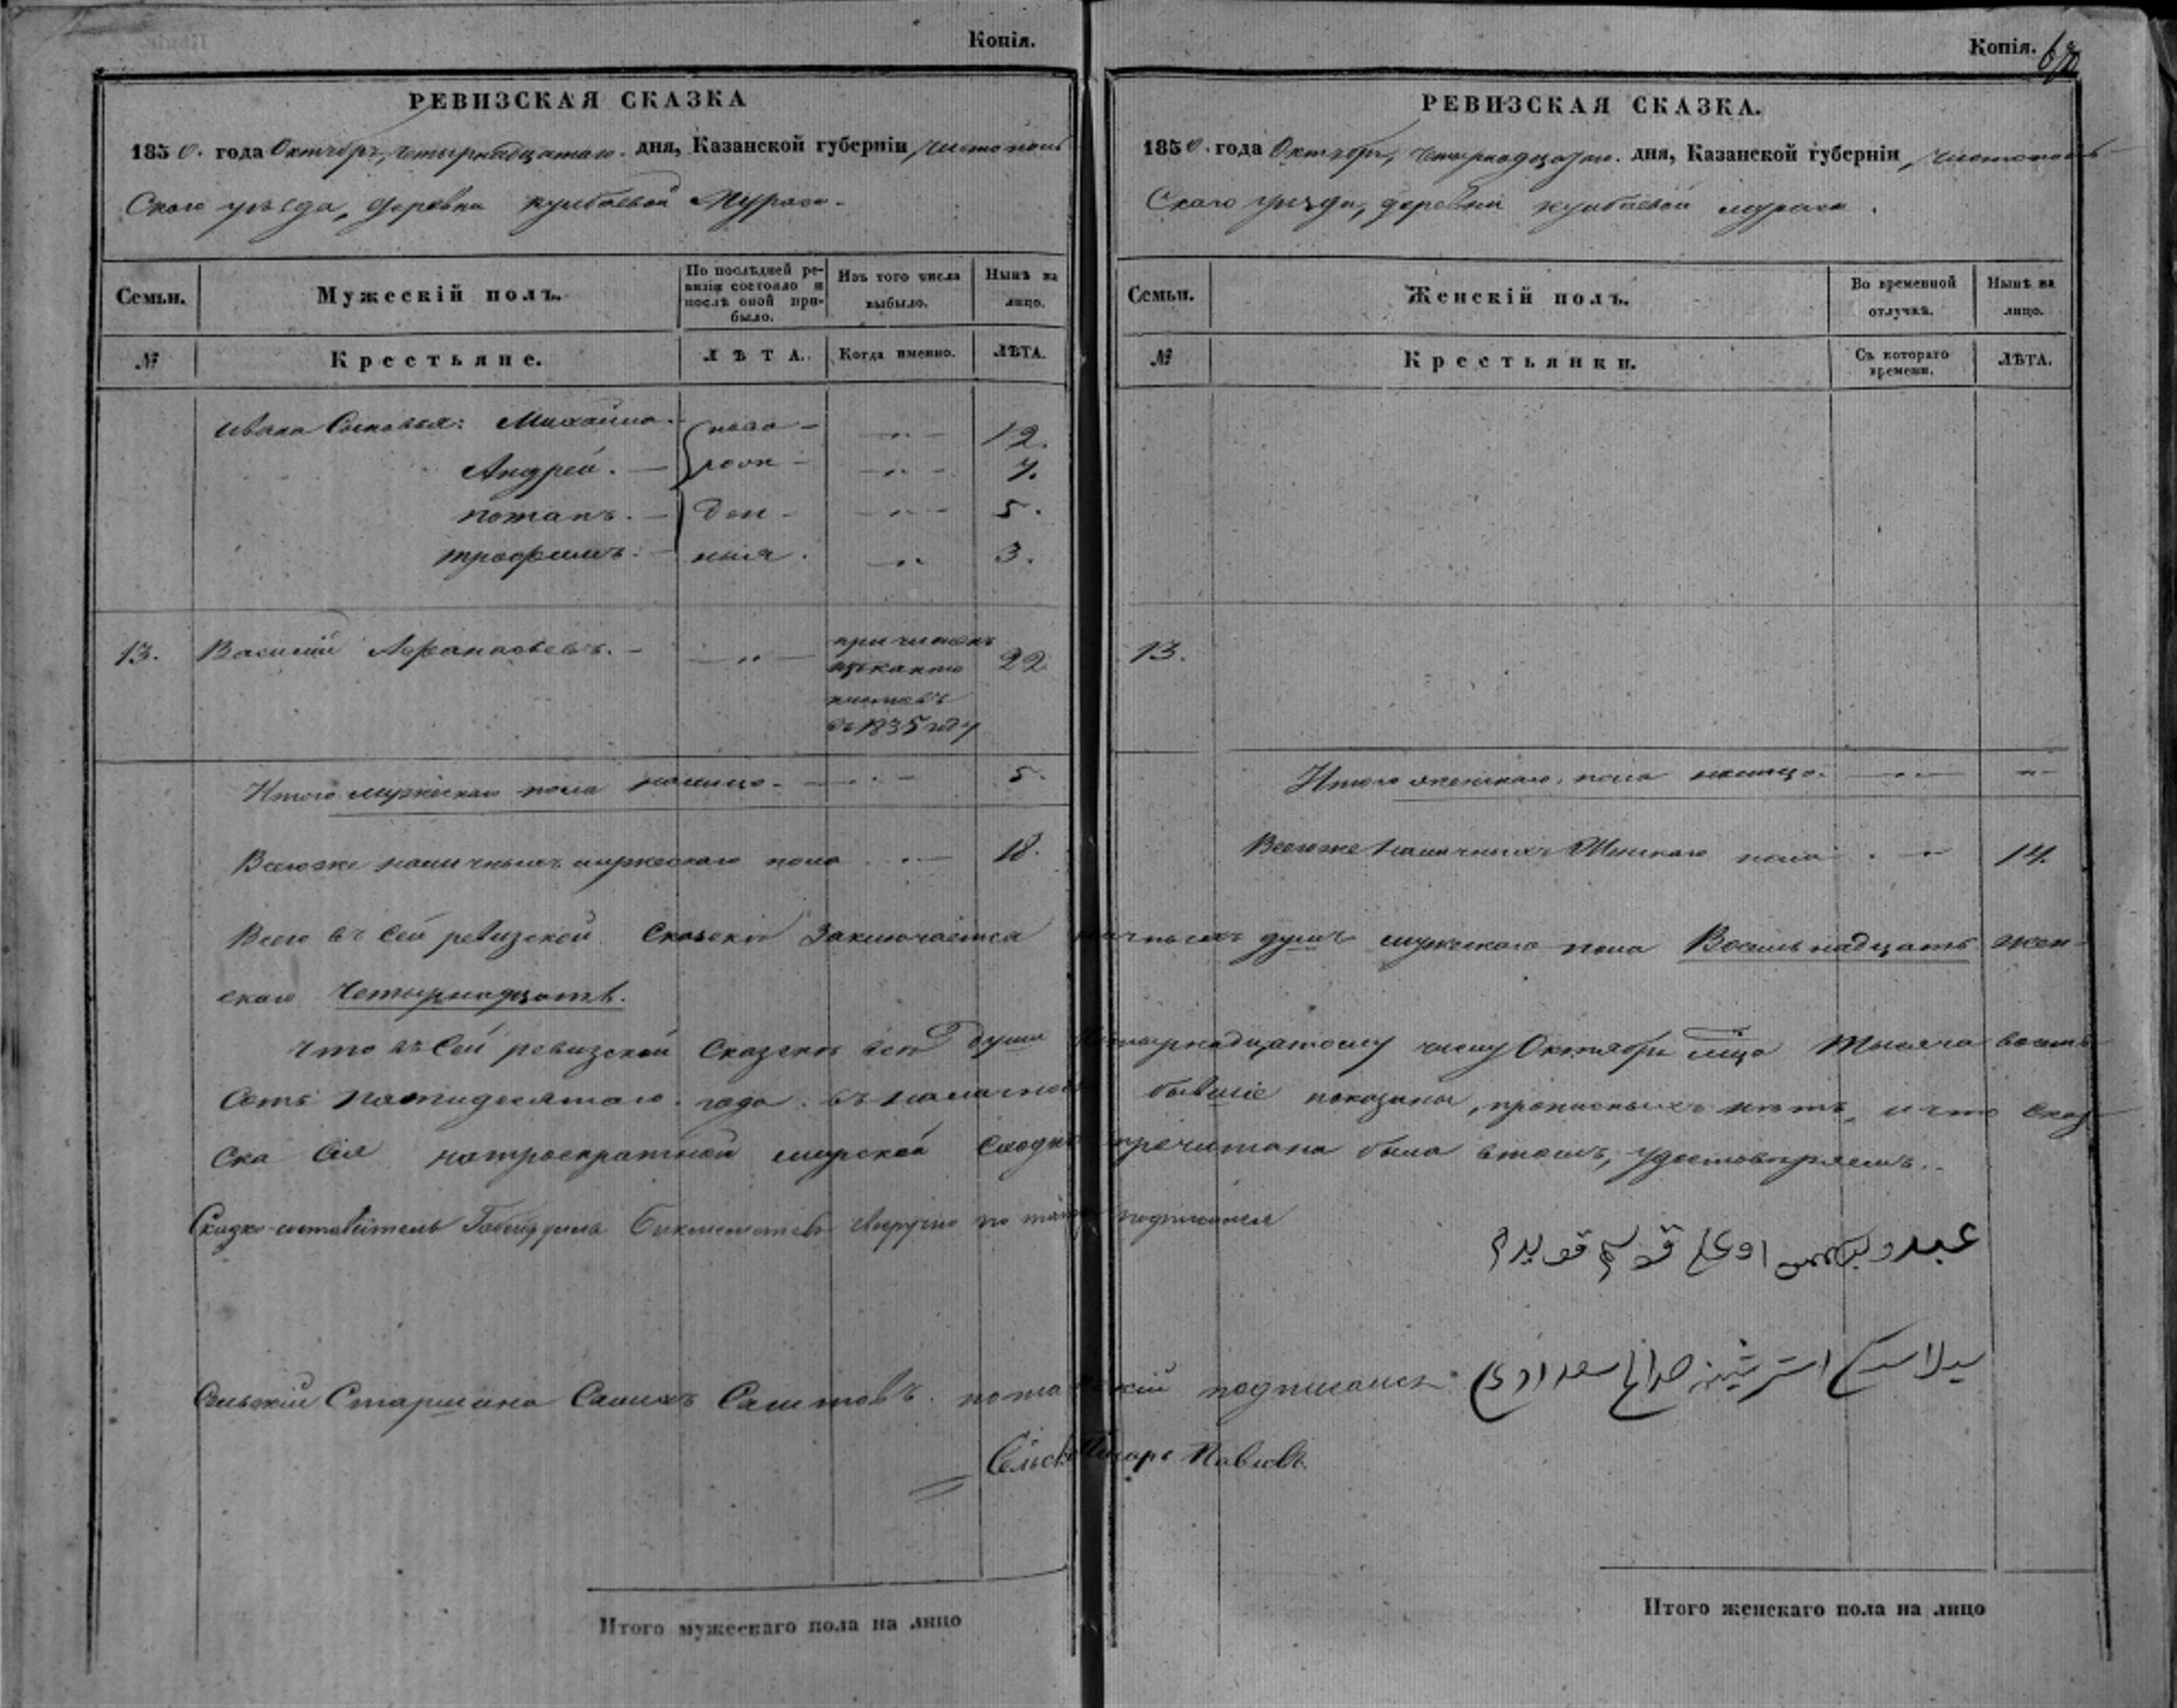 Копія.
РЕВИЗСКАЯ СКАЗКА
1850. года Октября, четырнадцатаго. дня, Казанской губерніи, Чистополь
Скаго уѣзда, деревни Кулбаевой Мураса.
Семьи. Мужескій полъ. По послѣдней ревизіи состояло и послѣ оной прибыло. Изъ того числа выбыло. Нынѣ на лицо.
№ Крестьяне. ЛѢТА. Когда именно. ЛѢТА.
Ивана Сыновья: Михайла. ново- 12.
Андрей. рож- 7.
потапъ. ден- 5.
трофимъ. ныя. 3.
13. Василій Афанасьевъ. причисленъ 22
въ кантонистовъ
въ 1835 году
Итого мужескаго пола налицо. 5.
Всего же наличныхъ мужескаго пола 18.
Копія.
РЕВИЗСКАЯ СКАЗКА.
1850. года Октября, четырнадцатаго. дня, Казанской губерніи, Чистополь-
Скаго уѣзда, деревни Кулбаевой Мураса.
Семьи. Женскій полъ. Во временной отлучкѣ. Нынѣ на лицо.
№ Крестьянки. Съ котораго времени. ЛѢТА.
13.
Итого женскаго пола налицо.
Всего же наличныхъ Женскаго пола 14.
Всего въ сей ревизской Сказкѣ Заключается наличныхъ душъ мужескаго пола Восемьнадцать жен-
скаго Четырнадцать.
Что въ Сей ревизской Сказкѣ всѣ души четырнадцатому числу Октября мца Тысяча восемь
Сотъ пятидесятаго года въ наличности бывшіе показаны, прописныхъ нѣтъ, и что Сказ-
Ска Сія на троекратной мирской Сходкѣ прочитана была въ томъ, Удостовѣряемъ.
Сказко-составитель по татарски подписался
Сельскій Старшина Салихъ Саитовъ по татарскій подписался
Сельскій Писарь Павловъ
Итого мужескаго пола на лицо
Итого женскаго пола на лицо